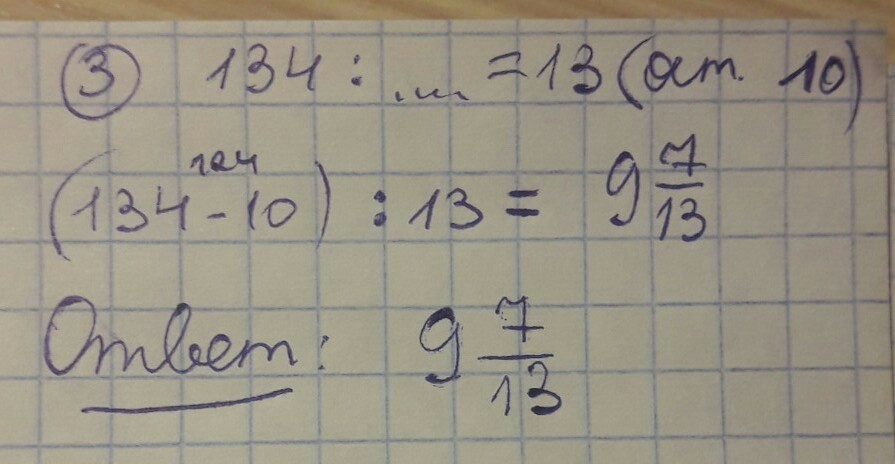 ③ 134 : ... = 13 (ост. 10)
124
(134 - 10) : 13 = 9 7/13
Ответ: 9 7/13